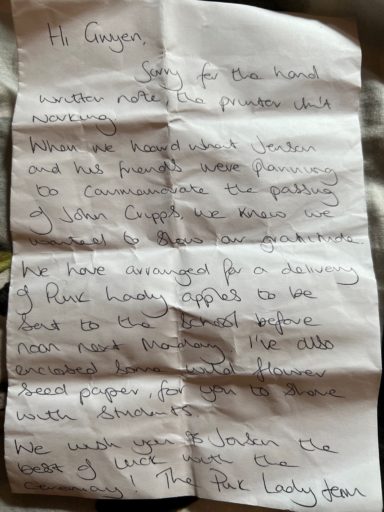 Hi Gwyen,
Sorry for the hand
written note, the printer isn't
working
When we heard what Jenson
and his friends were planning
to commemorate the passing
of John Cripps, we knew we
wanted to show our gratitude.
We have arranged for a delivery
of Pink Lady apples to be
sent to the school before
noon next Monday. I've also
enclosed some wild flower
seed paper, for you to share
with students.
We wish you & Jenson the
best of luck with the
ceremony! The Pink Lady team